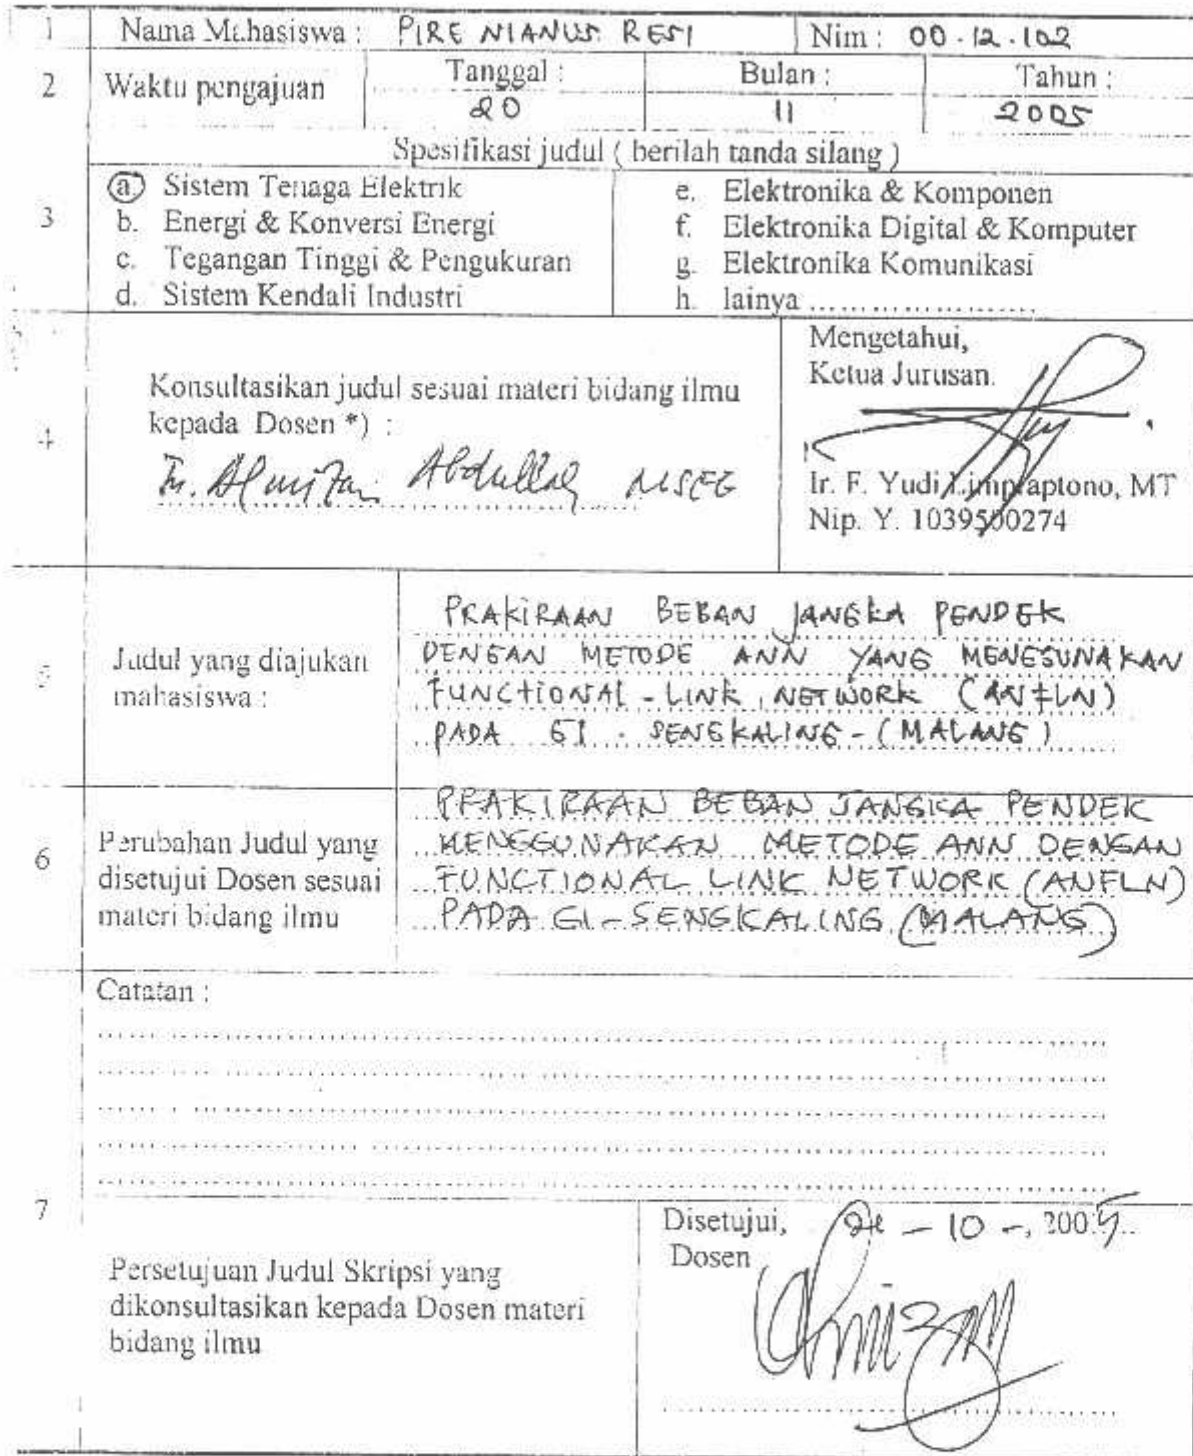 1 Nama Mahasiswa : PIRE NIANUS RESI Nim : 00.12.102
2 Waktu pengajuan Tanggal : Bulan : Tahun :
20 11 2005
Spesifikasi judul ( berilah tanda silang )
3
a. Sistem Tenaga Elektrik
b. Energi & Konversi Energi
c. Tegangan Tinggi & Pengukuran
d. Sistem Kendali Industri
e. Elektronika & Komponen
f. Elektronika Digital & Komputer
g. Elektronika Komunikasi
h. lainya ......................
4
Konsultasikan judul sesuai materi bidang ilmu
kepada Dosen *) :
Ir. Almizan Abdullah MSEE
Mengetahui,
Ketua Jurusan.
Ir. F. Yudi Limpraptono, MT
Nip. Y. 1039500274
5
Judul yang diajukan
mahasiswa :
PRAKIRAAN BEBAN JANGKA PENDEK
DENGAN METODE ANN YANG MENGGUNAKAN
FUNCTIONAL - LINK NETWORK (ANFLN)
PADA GI - SENGKALING - (MALANG)
6
Perubahan Judul yang
disetujui Dosen sesuai
materi bidang ilmu
PRAKIRAAN BEBAN JANGKA PENDEK
MENGGUNAKAN METODE ANN DENGAN
FUNCTIONAL LINK NETWORK (ANFLN)
PADA GI - SENGKALING (MALANG)
Catatan :
7
Persetujuan Judul Skripsi yang
dikonsultasikan kepada Dosen materi
bidang ilmu
Disetujui, - 10 -, 2005
Dosen